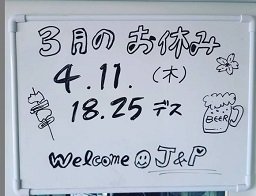 3月のお休み
4.11.(木)
18.25デス
BEER
Welcome J&P